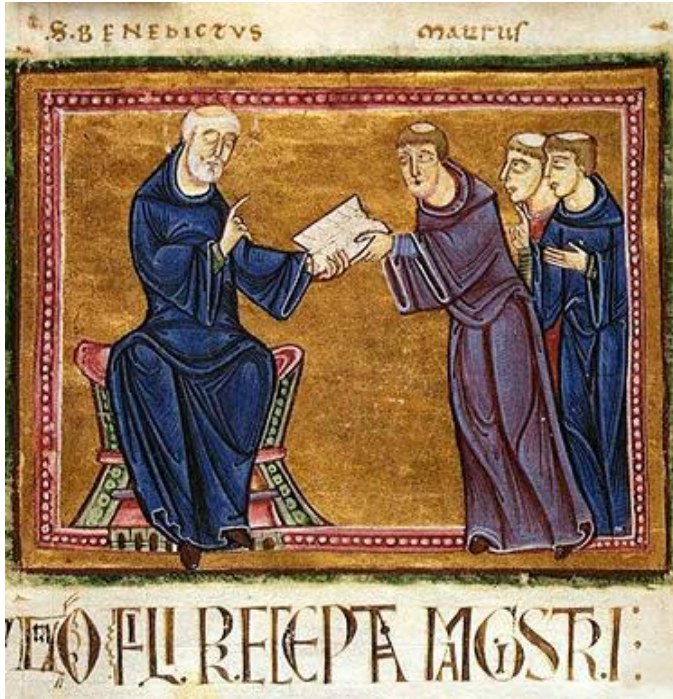 S. BENEDICTVS maurus
FILI RECEPTA MAGISTRI: